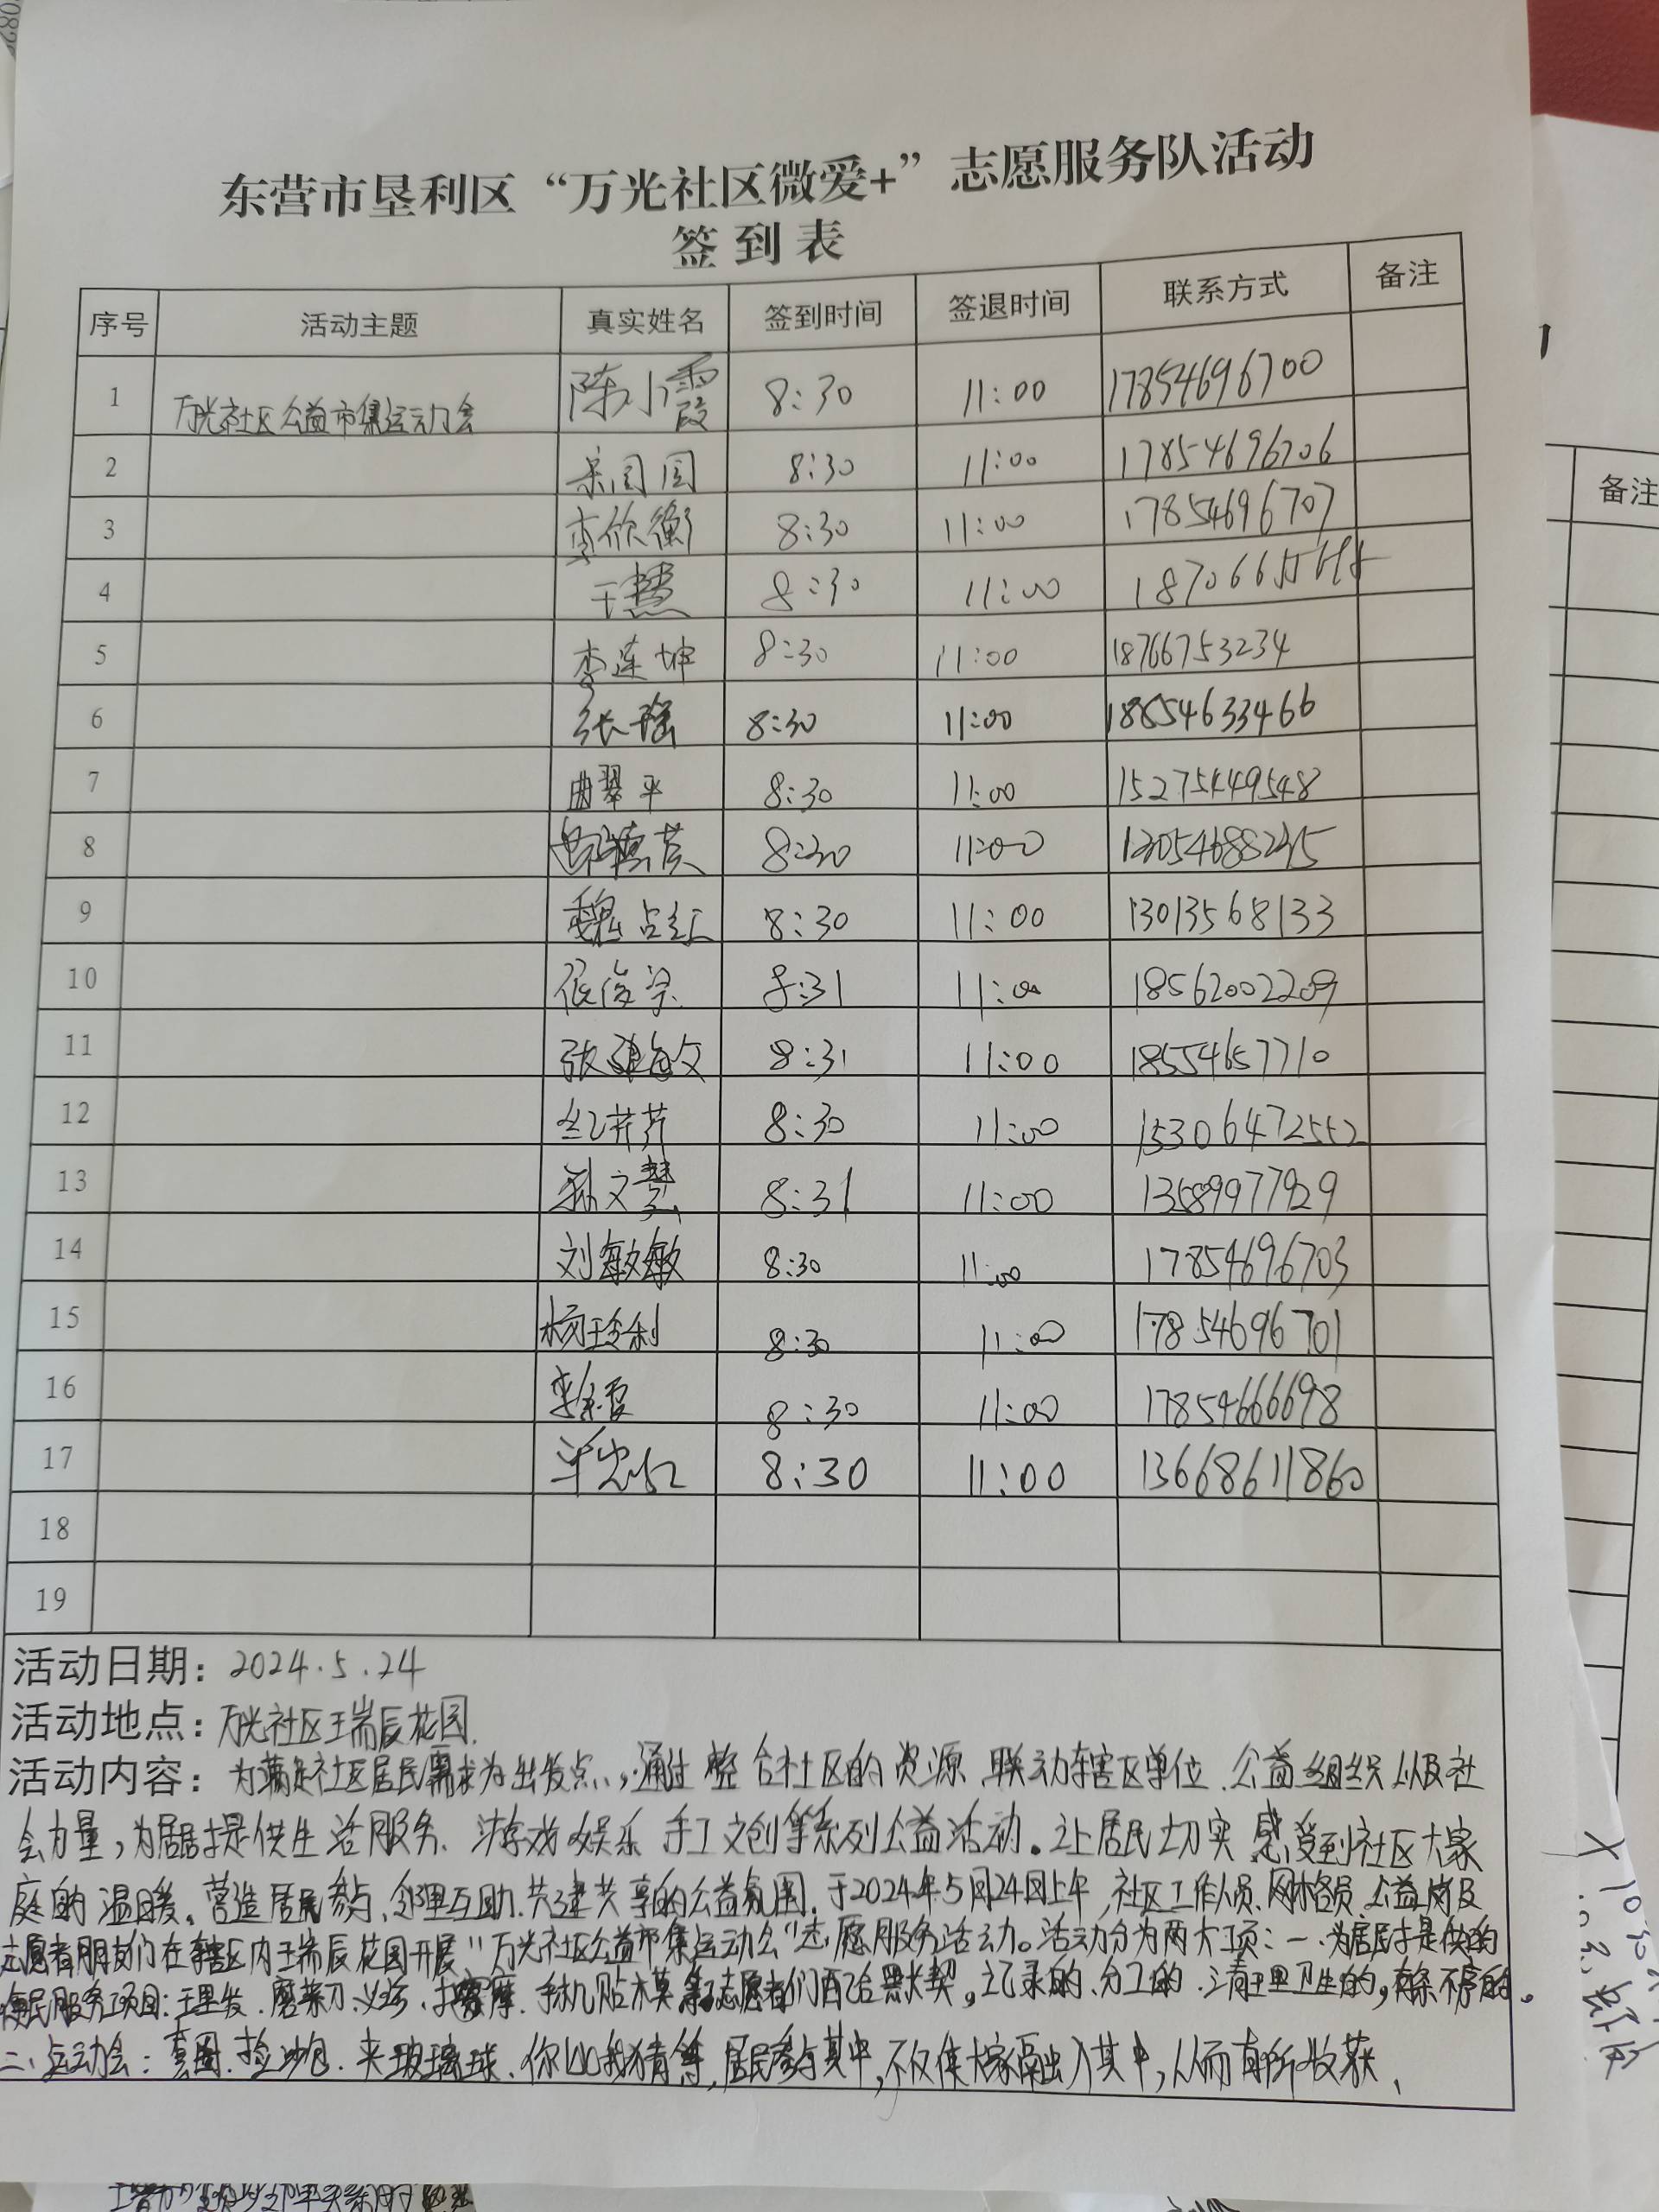 东营市垦利区“万光社区微爱+”志愿服务队活动
签到表
序号 活动主题 真实姓名 签到时间 签退时间 联系方式 备注
1 万光社区公益市集运动会 陈小霞 8:30 11:00 17854696700
2 圆圆 8:30 11:00 17854696706
3 李欣衡 8:30 11:00 17854696707
4 于慧 8:30 11:00 187066
5 李莲坤 8:30 11:00 18766753234
6 张瑶 8:30 11:00 18854633466
7 曲翠平 8:30 11:00 15275449548
8 8:30 11:00
9 魏占红 8:30 11:00 13013568133
10 8:31 11:00 18562002209
11 张 8:31 11:00 18554657710
12 纪芹芹 8:30 11:00 15306472552
13 孙文慧 8:31 11:00 13589977929
14 刘敏敏 8:30 11:00 17854696703
15 杨玲利 8:30 11:00 17854696701
16 李 8:30 11:00 17854666698
17 8:30 11:00 13668611860
18
19
活动日期:2024.5.24
活动地点:万光社区瑞辰花园.
活动内容:为满足社区居民需求为出发点,通过整合社区的资源、联动辖区单位、公益组织以及社
会力量,为居民提供生活服务、游戏娱乐、手工文创等系列公益活动。让居民切实感受到社区大家
庭的温暖。营造居民参与、邻里互助、共建共享的公益氛围。于2024年5月24日上午,社区工作人员、网格员、公益岗及
志愿者朋友们在辖区内瑞辰花园开展“万光社区公益市集运动会”志愿服务活动。活动分为两大项:一、为居民提供的
便民服务项目:理发、磨菜刀、义诊、按摩、手机贴膜等志愿者们配合默契,记录的、分工的、清理卫生的,有条不序的。
二、运动会:套圈、捡沙包、夹玻璃球、你比我猜等,居民参与其中,不仅使大家融入其中,从而有所收获、
备注